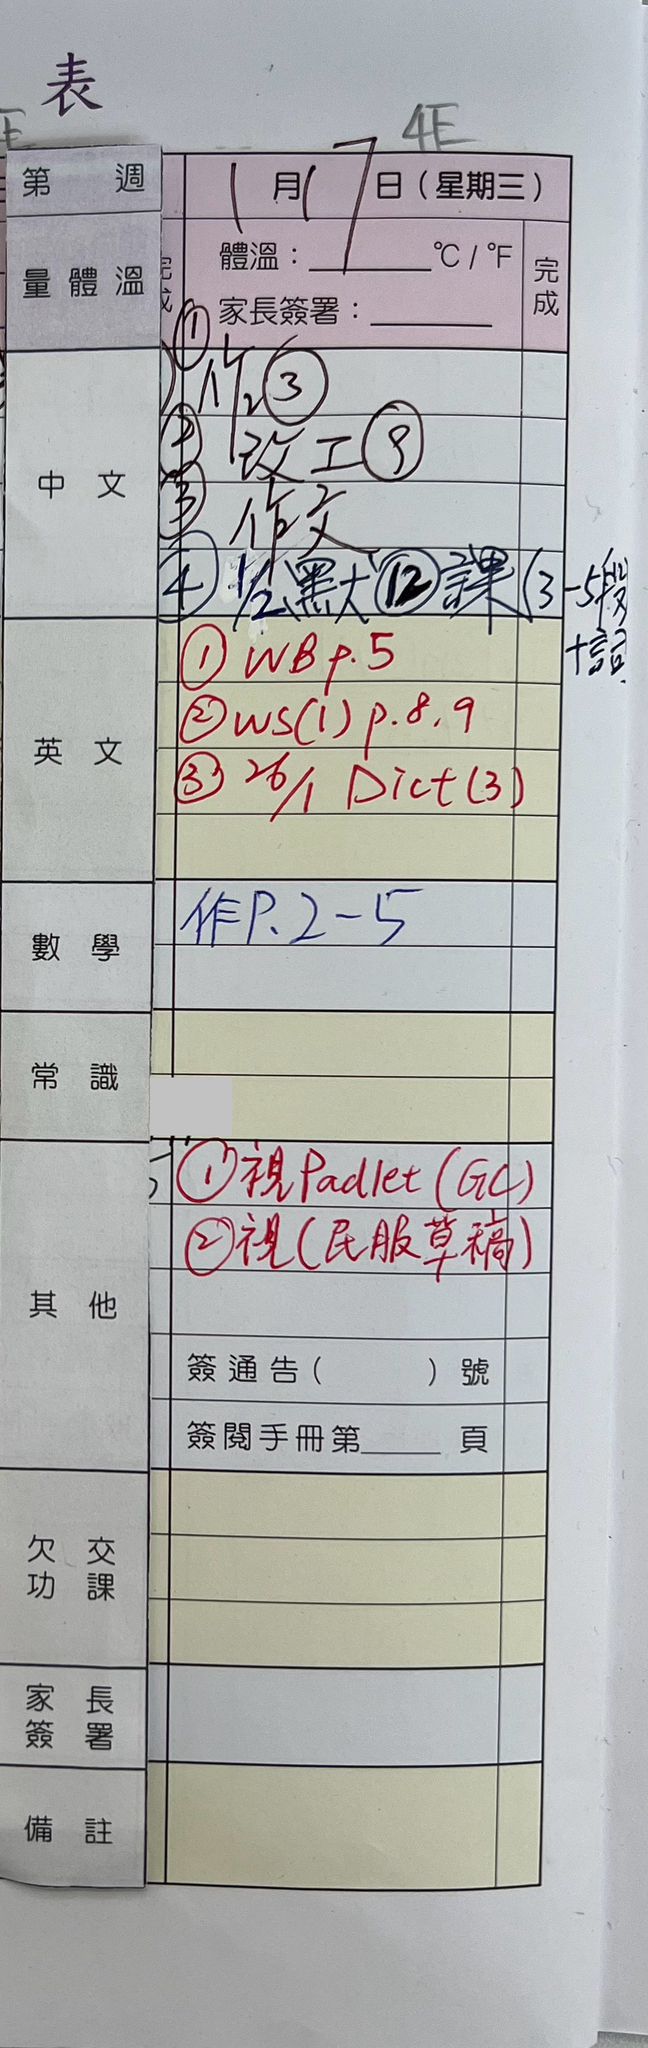 表
4E
第 週
1月17日(星期三)
量體溫
體溫：______℃/℉
完成
家長簽署：______
中文
① 作③
② 改工⑨
③ 作文
④ 1/2 默⑫課(3-5段
+詞
英文
① WB p.5
② WS(1) p.8,9
③ 26/1 Dict(3)
數學
作P.2-5
常識
其他
① 視Padlet(GC)
② 視(民服草稿)
簽通告( )號
簽閱手冊第____頁
欠交
功課
家長
簽署
備註